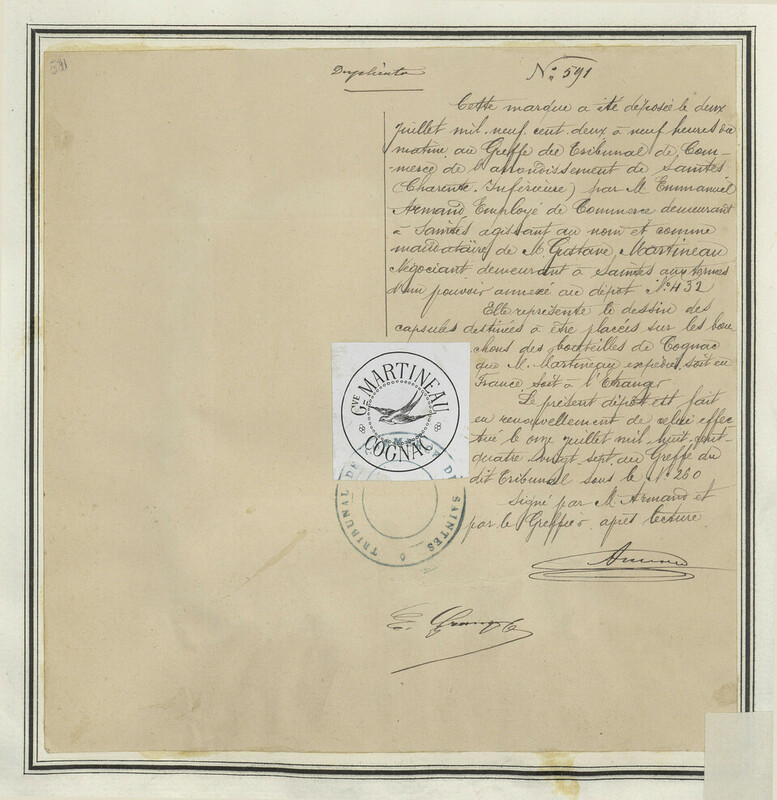 591
Duplicata
N° 591
Cette marque a été déposée le deux
juillet mil neuf cent deux à neuf heures du
matin au Greffe du Tribunal de Com-
-merce de l'arrondissement de Saintes
(Charente Inférieure) par M. Emmanuel
Armand Employé de Commerce demeurant
à Saintes agissant au nom et comme
mandataire de M. Gustave Martineau
Négociant demeurant à Saintes aux termes
d'un pouvoir annexé au dépôt N° 432
Elle représente le dessin des
capsules destinées à être placées sur les bou
chons des bouteilles de Cognac
que M. Martineau expédie, soit en
France, soit à l'Etranger
Le présent dépôt est fait
en renouvellement de celui effec
tué le onze juillet mil huit cent
quatre vingt sept au Greffe du
dit Tribunal sous le N° 260
Signé par M. Armand et
par le Greffier après lecture
Gve MARTINEAU
M
COGNAC
TRIBUNAL DE DE SAINTES
Armand
E.